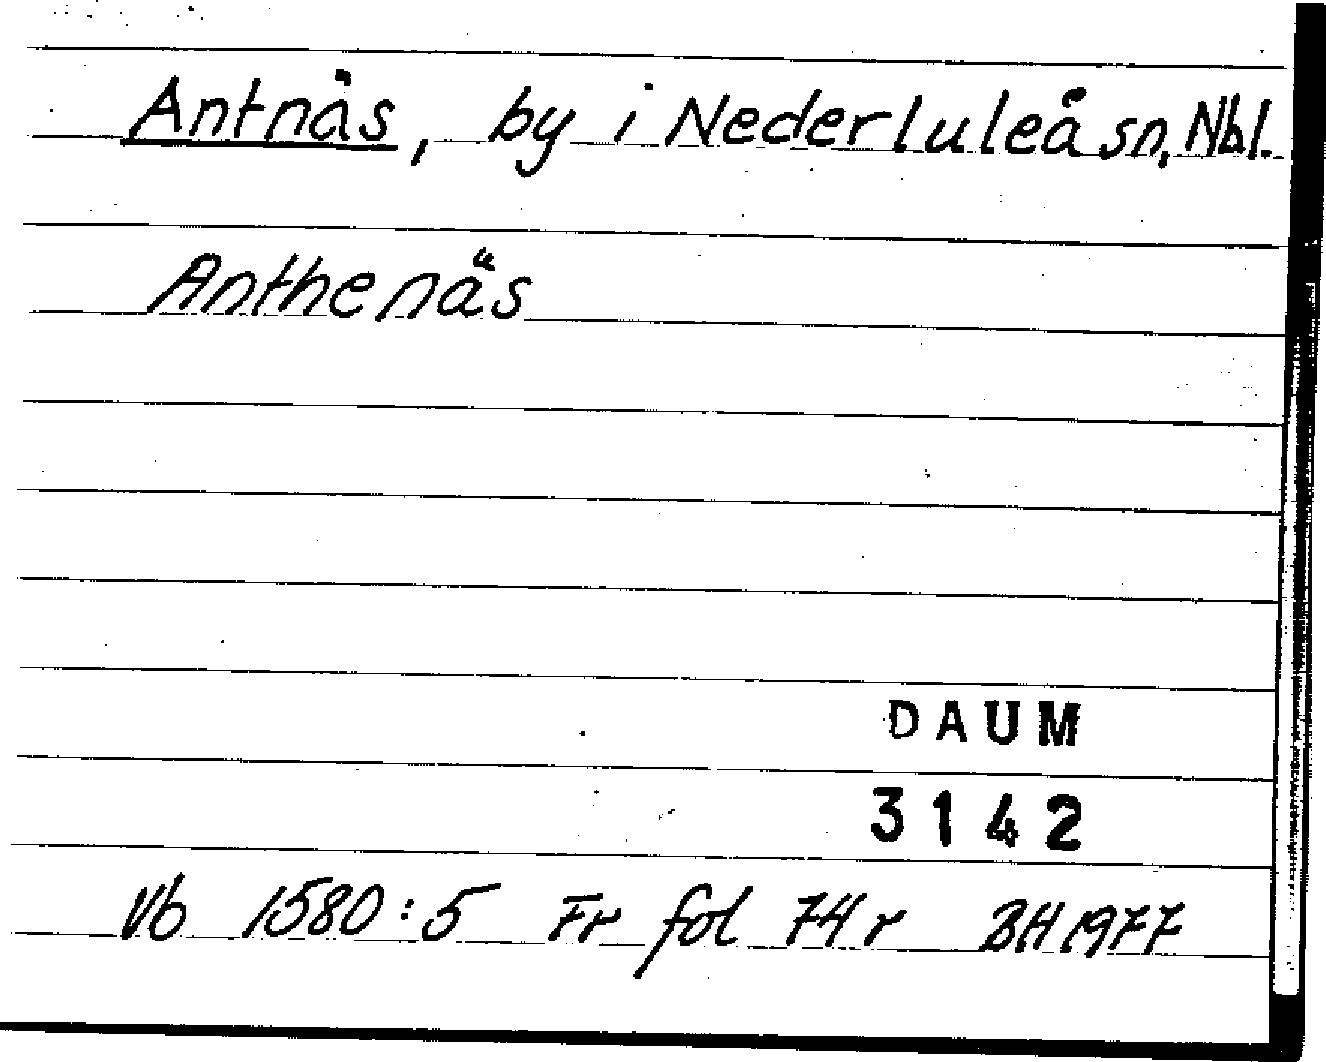 Antnäs, by i Nederluleå sn, Nbl.
Anthenäs
DAUM
3142
Vb 1580:5 Fr fol 74 r BH 1977